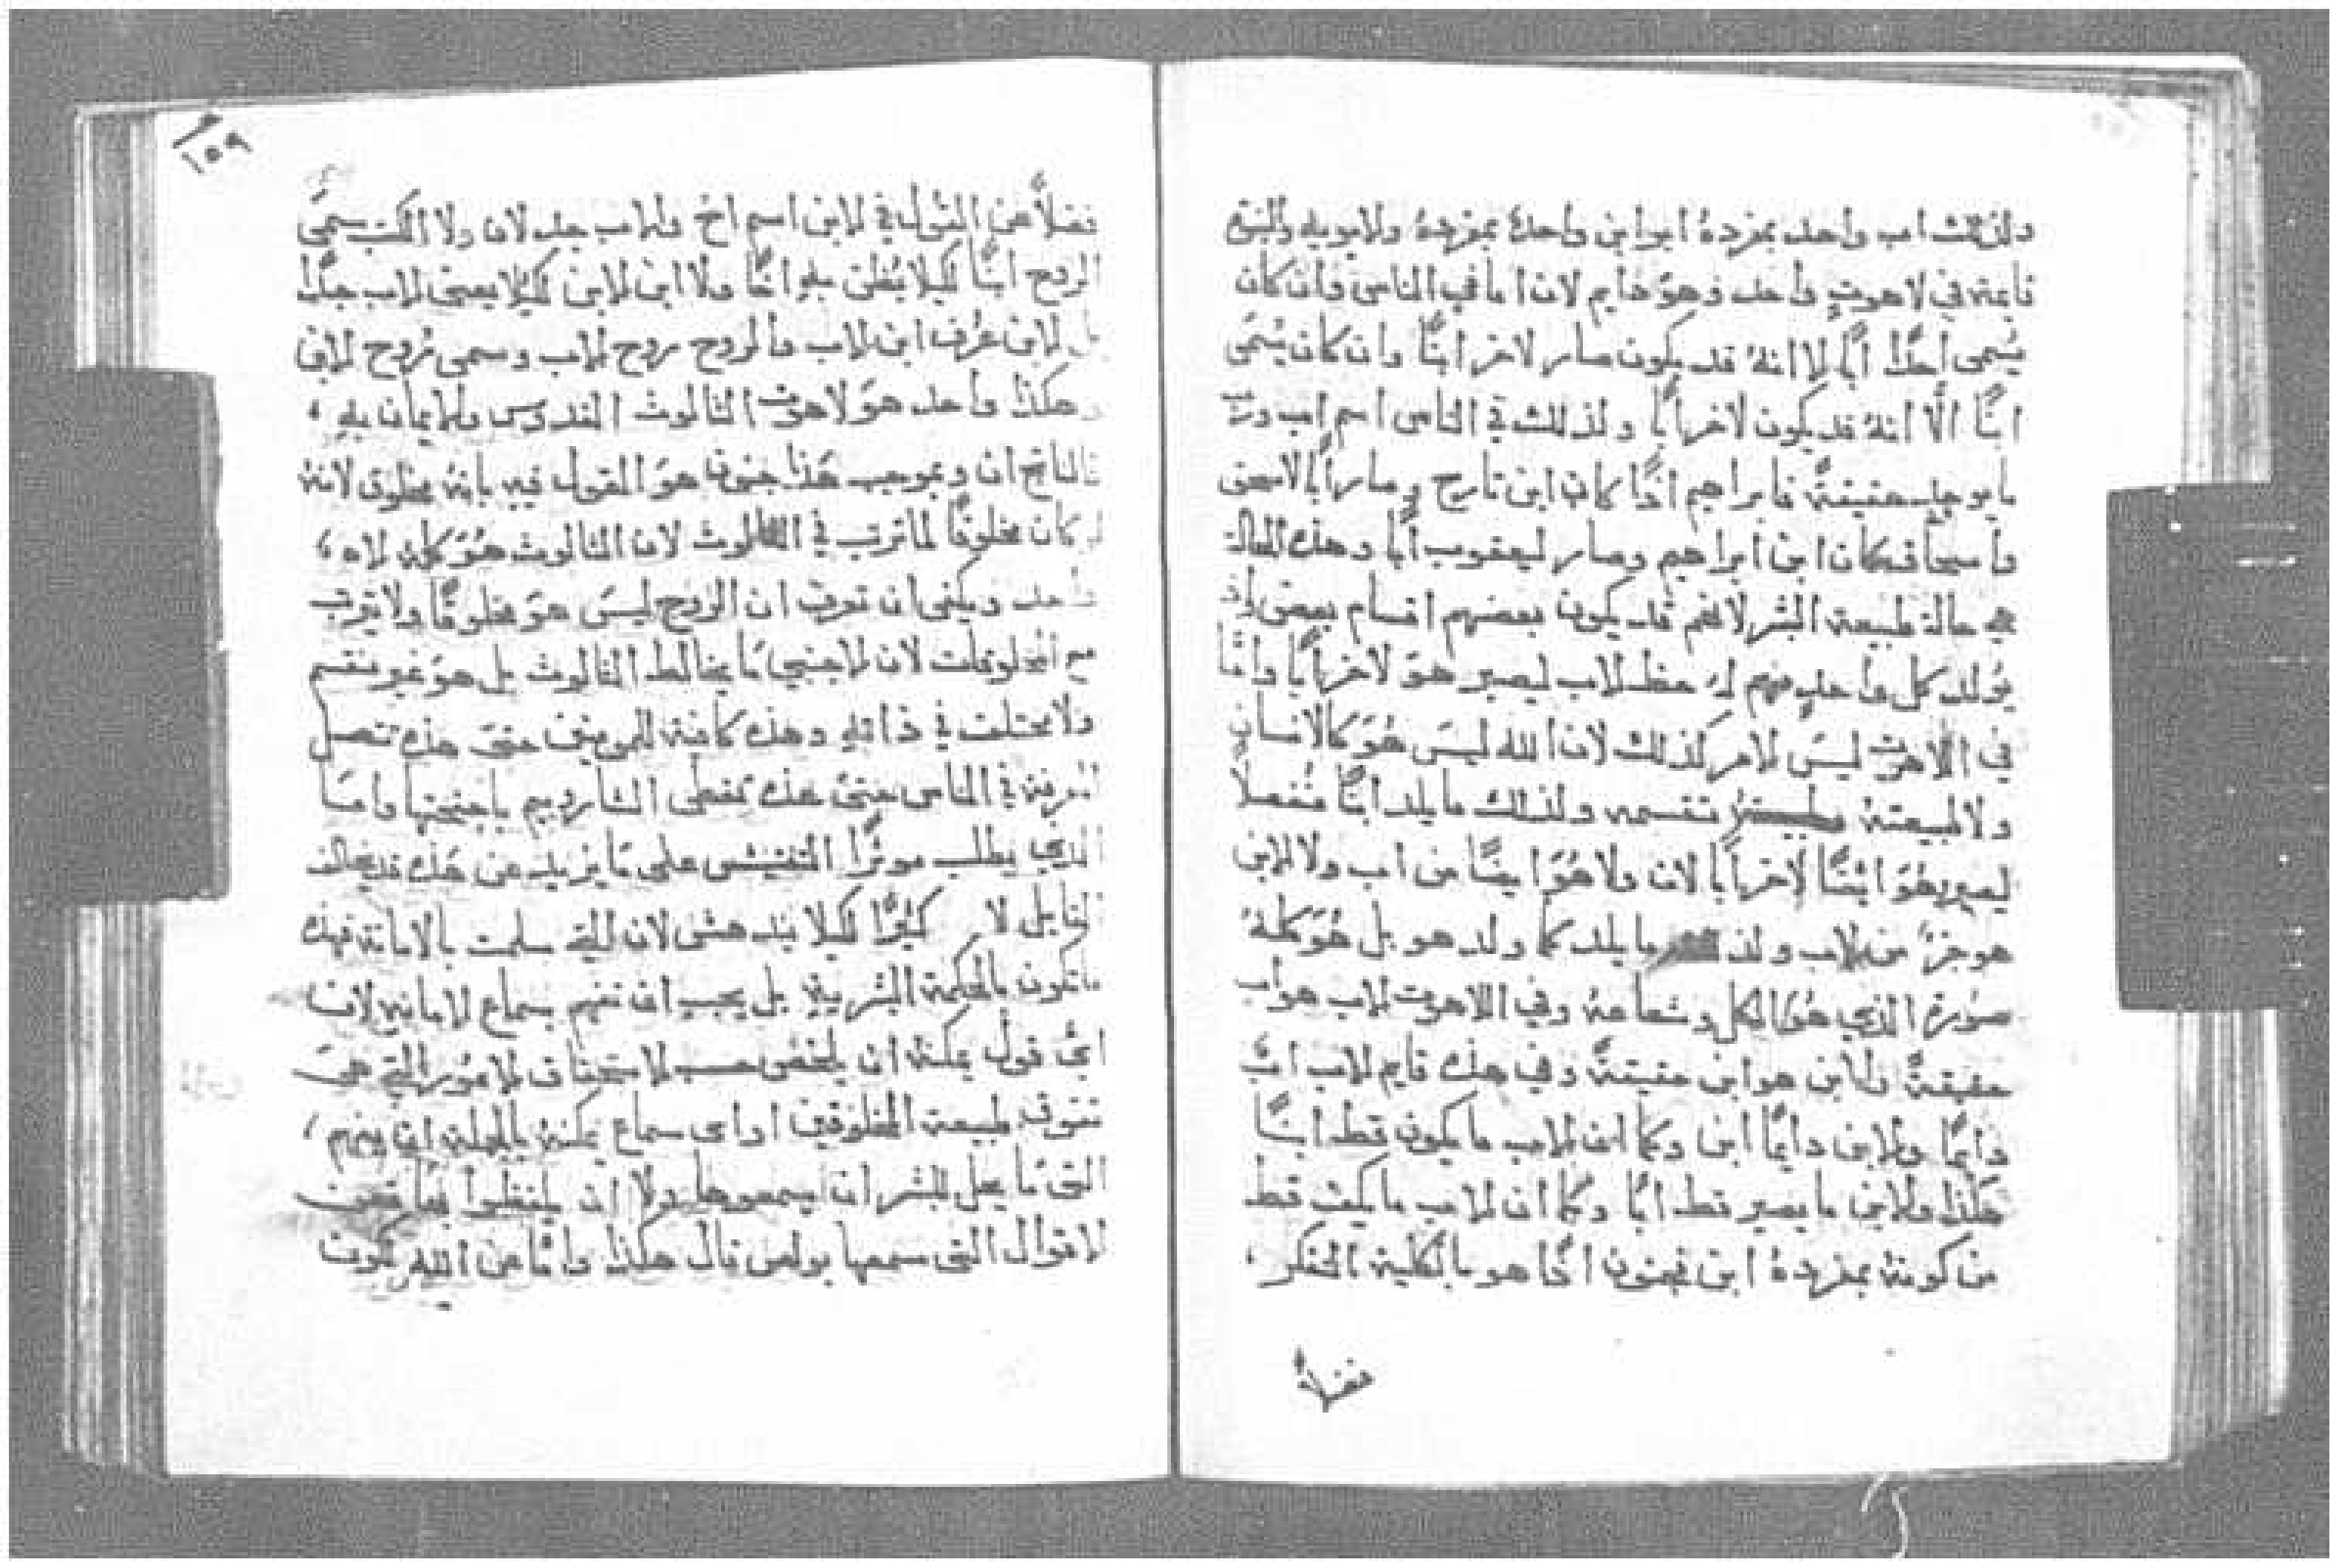 ولذلك اب واحد بمفرده ابو ابن واحد بمفرده والابويه والبنوه
قايمة في لاهوت واحد وهو دايم لان اما في الناس وان كان
يُسمى احدًا أبًا الا انهُ قد يكون صار لاخر ابنًا وان كان يُسمَى
ابنًا الَّا انهُ قد يكون لاخر أبًا ولذلك في الناس اسم اب وابن
ما يوجد حقيقةً فابراهيم اذًا كان ابن تارح وصار أبًا لاسحق
واسحاق كان ابن ابراهيم وصار ليعقوب أبًا وهذه الحالة
هي حالة طبيعة البشر لانهم قد يكون بعضهم اقسام بعض واذ
يُولد كل واحدٍ منهم لهُ حظ الاب ليصير هوَ لاخر أبًا وامَّا
في اللاهوت ليسَ الامر كذلك لان الله ليسَ هُوَ كالانسان
ولا طبيعتهُ تقسمه ولذلك ما يلد ابنًا مُنفصلاً
ليصير هُوَ ايضًا لاخر أبًا لان ولا هُوَ ايضًا من اب ولا الابن
هو جزءً من الاب ما يلد كما ولد هو بل هُوَ كلمةُ
صورة الذي هُوَ الكل وشعاعهُ وفي اللاهوت الاب هو اب
حقيقةً والابن هو ابن حقيقةً وفي هذه قايم الاب ابٌ
دايمًا والابن دايمًا ابن وكما ان الاب ما يكون قط ابنًا
هكذا والابن ما يصير قط أبًا وكما ان الاب ما يكف قط
من كونهُ بمفردهُ ابن فجنون اذًا هو بالكلية الفكر،
فضلاً
١٥٩
فضلاً عن القول في الابن اسم اخ وللاب جد لان ولا الكتب سمَّى
الروح ابنًا لكيلا يُظن بهِ اخًا ولا ابن الابن لكيلا يعنى الاب جدًا
بل الابن عُرف ابن الاب والروح روح الاب وسمى روح الابن
وهكذا واحد هوَ لاهوت الثالوث القدوس والايمان بهِ،
فالناتج ان وبموجب هَذا جنون هوَ القول فيهِ بانهُ مخلوق لانهُ
لو كان مخلوقًا لما ترتب في الثالوث لان الثالوث هُوَ كلهُ الاه،
واحد ويكفى ان تعرف ان الروح ليسَ هوَ مخلوقًا ولا يترتب
مع المخلوقات لان الاجنبي مَا يخالط الثالوث بل هوَ غير منقسم
ولا مختلف في ذاتهِ وهذه كافية للمومنين حتى هذه تتصل
المعرفة في الناس حتى هذه تغطى الشاروبيم باجنحتها وامَّا
الذي يطلب موثرًا التفتيش على مَا يزيد عن هَذه قد يخالف
القايل لا كثيرًا لكيلا يندهش لان التي سلمت بالامانة فهذه
ما تكون بالحكمة البشرية بل يجب ان تفهم بسماع الامانة لان
ايُّ قول يمكنهُ ان يلخص حسب الاستحقاق الامُور التي هىَ
تفوق طبيعة المخلوقين او اى سماع يمكنهُ بالجملة ان يفهم،
التى مَا يحل للبشر ان يسمعوها ولا ان يلفظوا بها فعن
الاقوال التى سمعها بولس قال هكذا وامَّا عن الله يكون